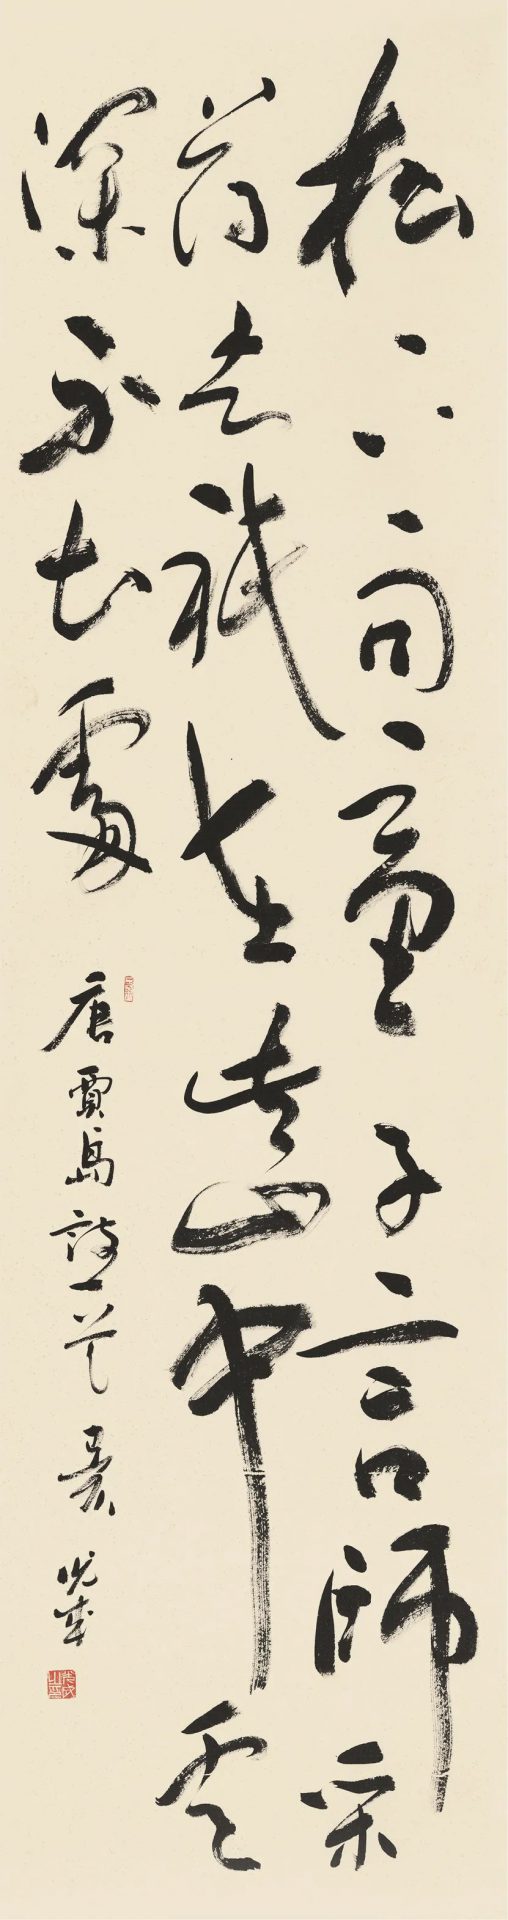 松下問童子言師采
药去祇在此山中云
深不知處
唐賈島詩一首